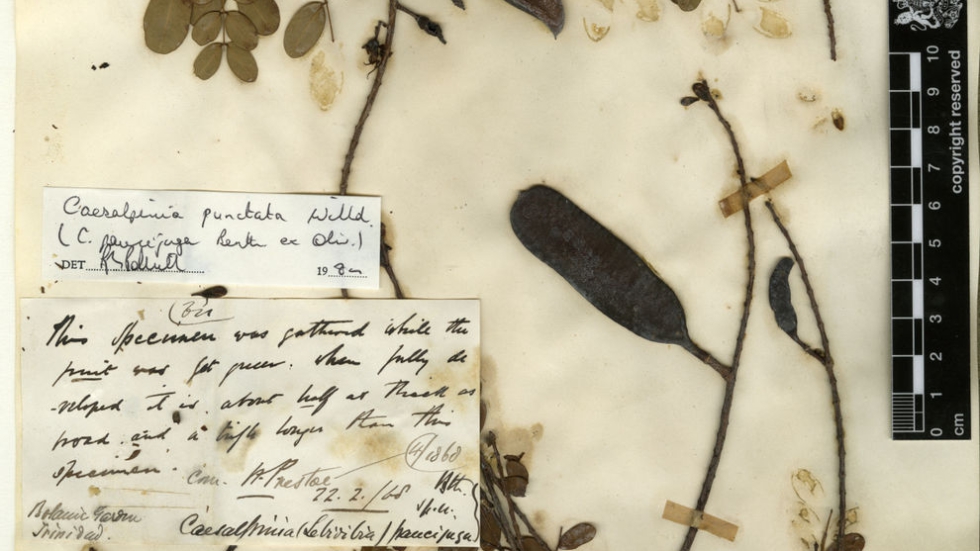 Caesalpinia punctata Willd.
(C. paucijuga Benth ex Oliv.)
DET
19 80
This specimen was gathered while the
fruit was yet green. when fully de
-veloped it is about half as thick as
broad and a trifle longer than this
specimen.
com. H. Prestoe
22.2./68
4/1868
Bth.
Botanic Garden
Trinidad.
Caesalpinia (Lebidibia) paucijuga
10
9
8
7
6
5
4
3
2
1
0
cm
copyright reserved